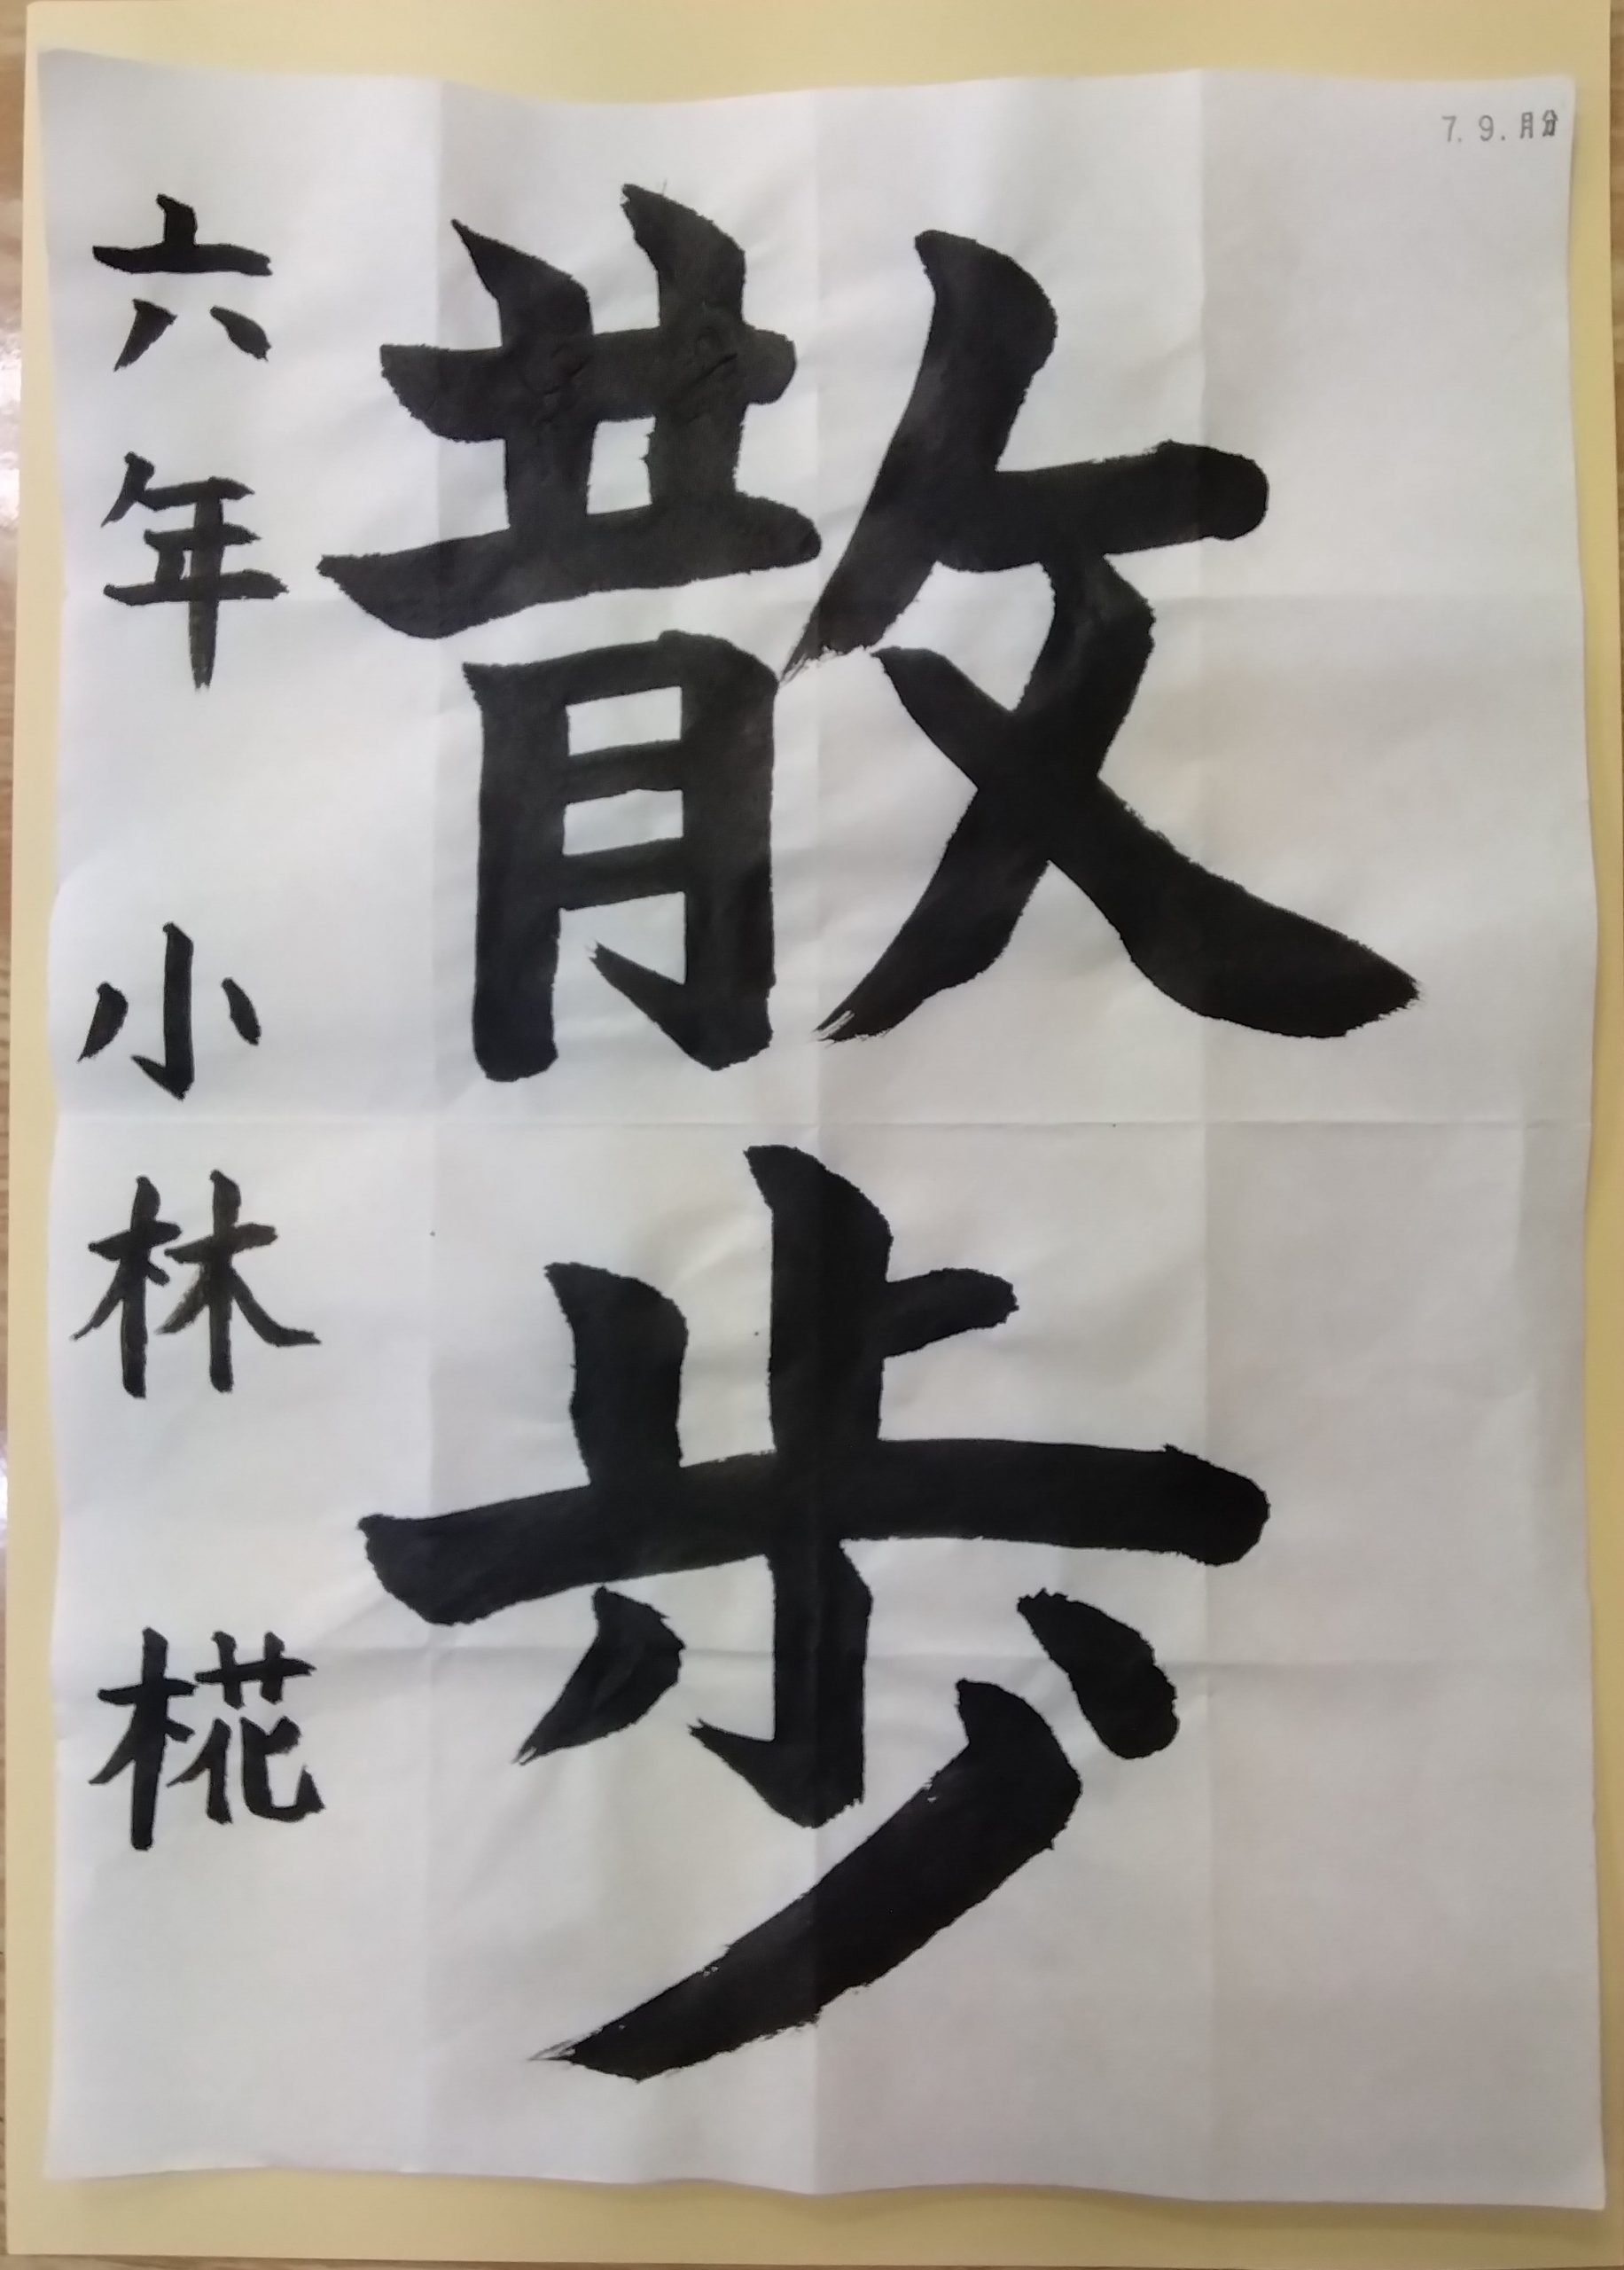 7. 9. 月分
散歩
六年 小林 椛